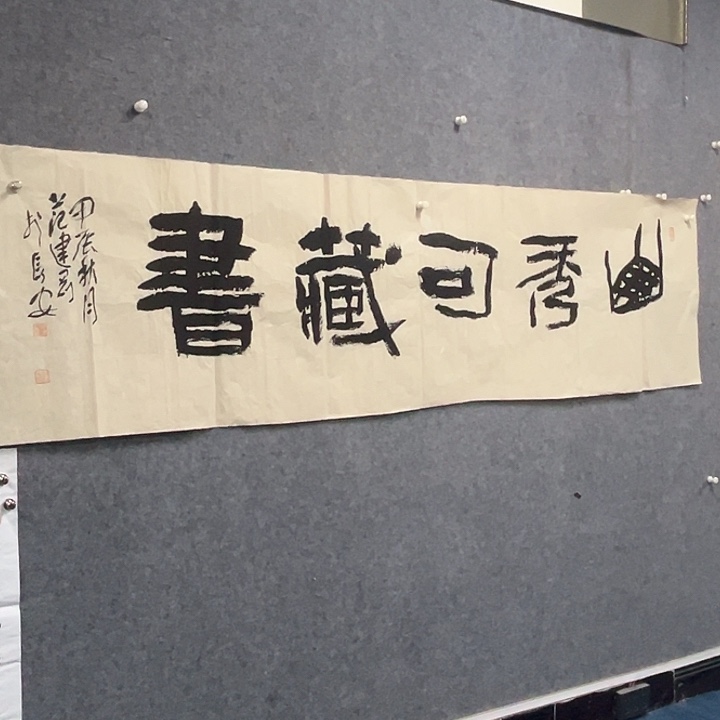 幽秀可藏書
甲辰秋月
范建
於長安